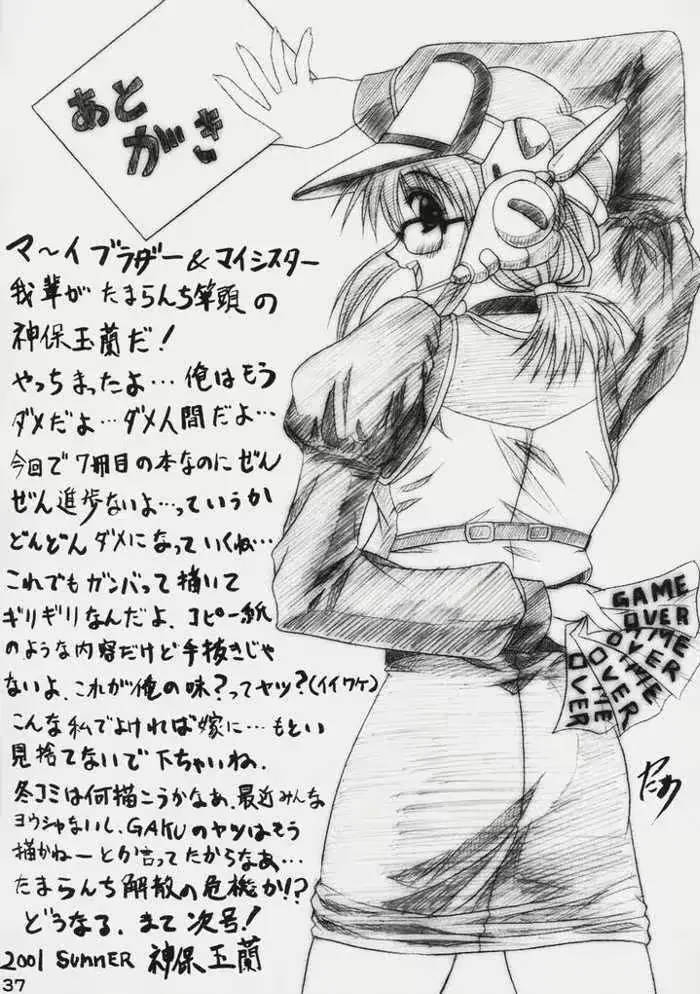 あとがき
マ〜イブラザー&マイシスター
我輩がたまらんち筆頭の
神保玉蘭だ!
やっちまったよ…俺はもう
ダメだよ…ダメ人間だよ…
今回で7冊目の本なのにぜん
ぜん進歩ないよ…っていうか
どんどんダメになっていくね…
これでもガンバって描いて
ギリギリなんだよ、コピー紙
のような内容だけど手抜きじゃ
ないよ、これが俺の味?ってヤツ?(イイワケ)
こんな私でよければ嫁に…もとい
見捨てないで下ちいね、
冬コミは何描こうかなあ、最近みんな
ヨウシャないし、GAKUのヤツはもう
描かねーとか言ってたからなあ…
たまらんち解散の危機か!?
どうなる、まて次号!
2001 SUMMER 神保玉蘭
37
GAME OVER
GAME OVER
OVER
OVER